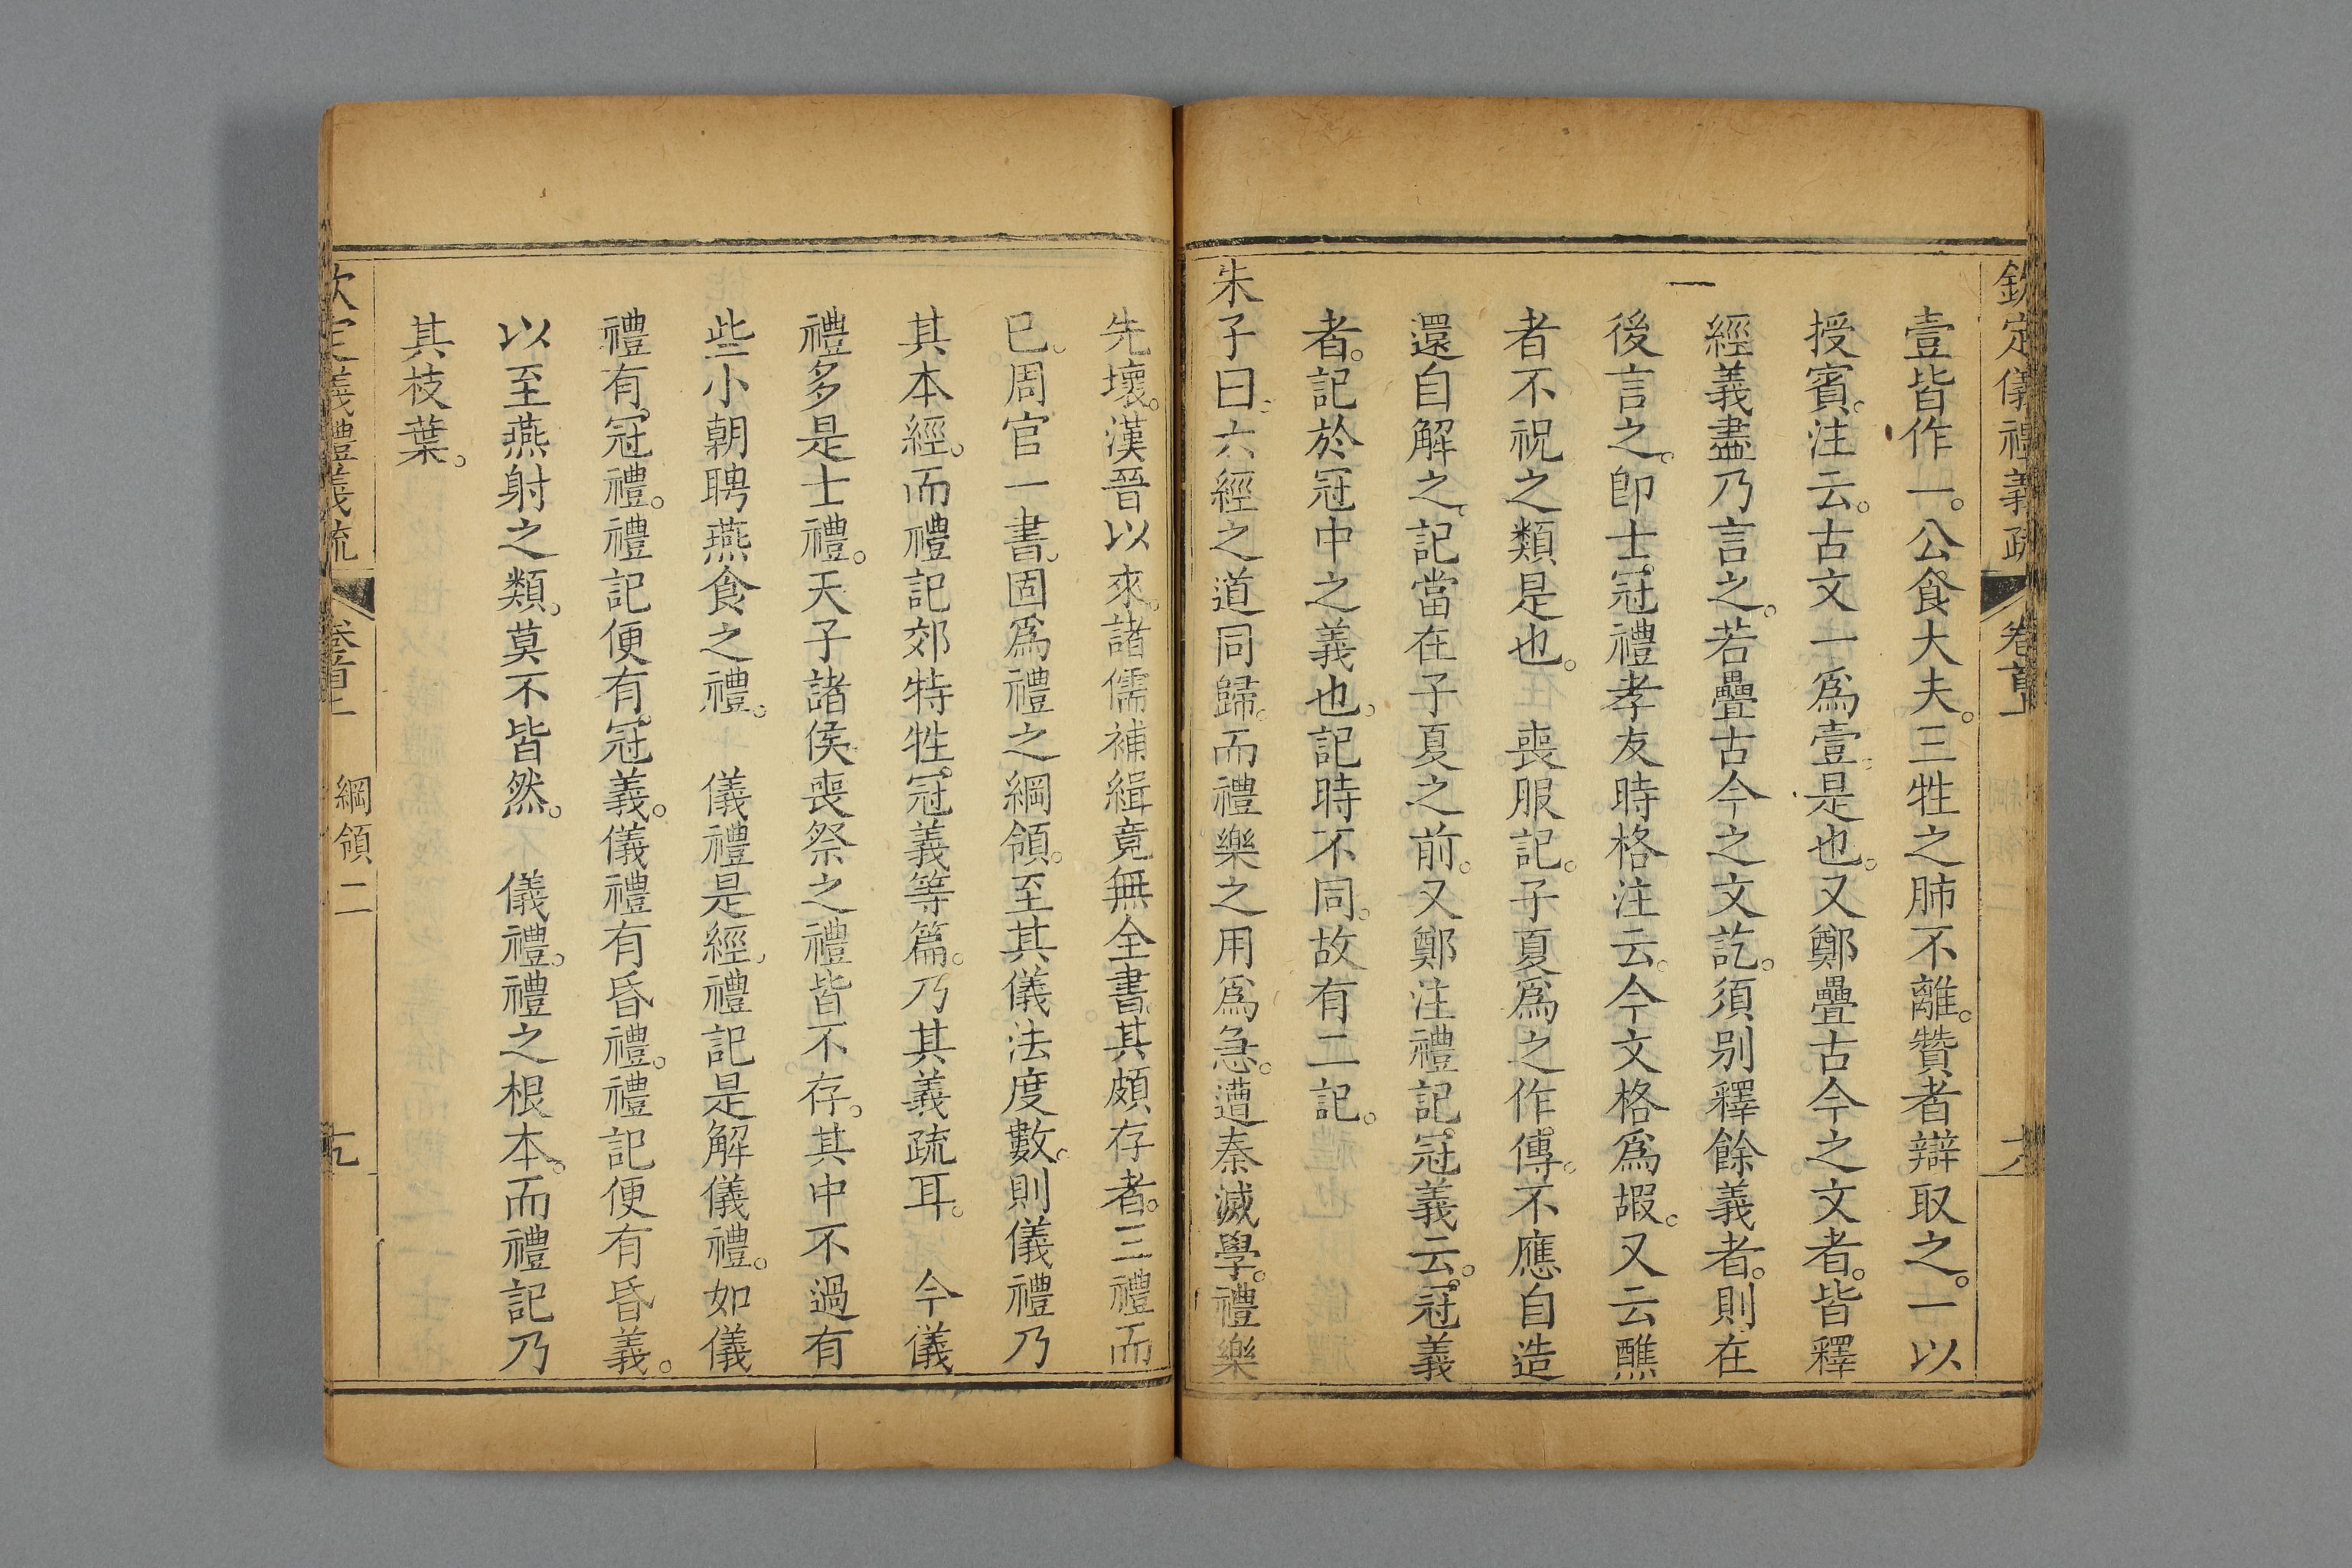 欽定儀禮義疏 卷首上 六
壹皆作一。公食大夫。三牲之肺不離。贊者辯取之。一以
授賓。注云。古文一爲壹。是也。又鄭疊古今之文者。皆釋
經義盡乃言之。若疊古今之文訖。須别釋餘義者。則在
後言之。卽士冠禮孝友時格注云。今文格爲嘏。又云醮
者不祝之類是也。 喪服記。子夏爲之作傳。不應自造
還自解之。記當在子夏之前。又鄭注禮記冠義云。冠義
者。記於冠中之義也。記時不同。故有二記。
朱子曰。六經之道同歸。而禮樂之用爲急。遭秦滅學。禮樂
先壞。漢晉以來。諸儒補緝。竟無全書。其頗存者。三禮而
已。周官一書。固爲禮之綱領。至其儀法度數。則儀禮乃
其本經。而禮記郊特牲。冠義等篇。乃其義疏耳。 今儀
禮多是士禮。天子諸侯喪祭之禮皆不存。其中不過有
些小朝聘燕食之禮。 儀禮是經。禮記是解儀禮。如儀
禮有冠禮。禮記便有冠義。儀禮有昏禮。禮記便有昏義。
以至燕射之類。莫不皆然。 儀禮。禮之根本。而禮記乃
其枝葉。
欽定儀禮義疏 卷首上 綱領二